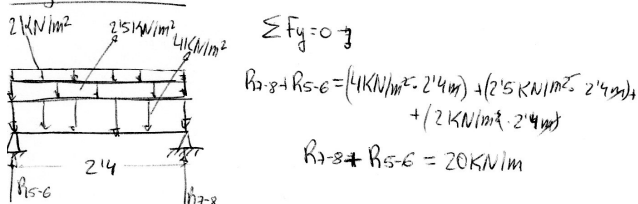 2KN/m²
2'5KN/m²
4KN/m²
2'4
R5-6
R7-8
ΣFy=0
R7-8+R5-6=(4KN/m²·2'4m)+(2'5KN/m²·2'4m)+
+(2KN/m²·2'4m)
R7-8+R5-6=20KN/m